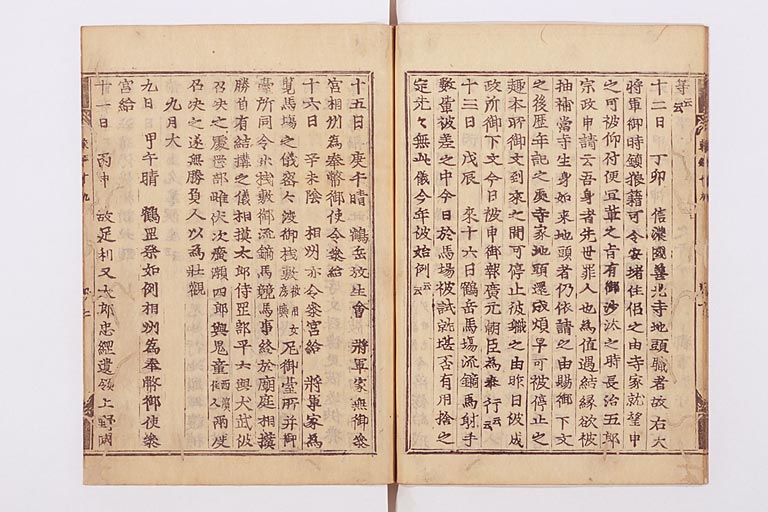 等云云
十二日 丁卯 信濃國善光寺地頭職者故右大
將軍御時頻狼籍可令安堵住侶之由寺家就望申
之可被仰付便宜輩之旨有御沙汰之時長沼五郎
宗政申請云吾身者先世罪人也為値遇結縁欲被
抽補當寺生身如来地頭者仍依請之由賜御下文
之後歴年記之處寺家地頭還成煩早可被停止之
趣本所御下文到来之間可停止彼職之由昨日彼成
政所御下文今日被申御報廣元朝臣為奉行云云
十三日 戊辰 来十六日鶴岳馬場流鏑馬射手
數輩被差之中今日於馬場被試就堪否有用捨之
定先々無此儀今年被始例云云
十五日 庚午晴 鶴岳放生會 將軍家無御参
宮相州為奉幣御使令参給
十六日 辛未陰 相州亦令参宮給 將軍家為
覽馬場之儀密々渡御棧敷 尼御臺所并御
臺所同令 棧敷御流鏑馬競馬事終於廟庭相撲
勝負有結構之儀相摸太郎侍 郎平六與犬武被
召决之 次廣瀬四郎與鬼童 兩度
召决之遂無勝負人以為壮觀
九月大
九日 甲午晴 鶴罡祭如例相州為奉幣御使参
宮給
十一日 丙申 故足利又太郎忠綱遺領上野國